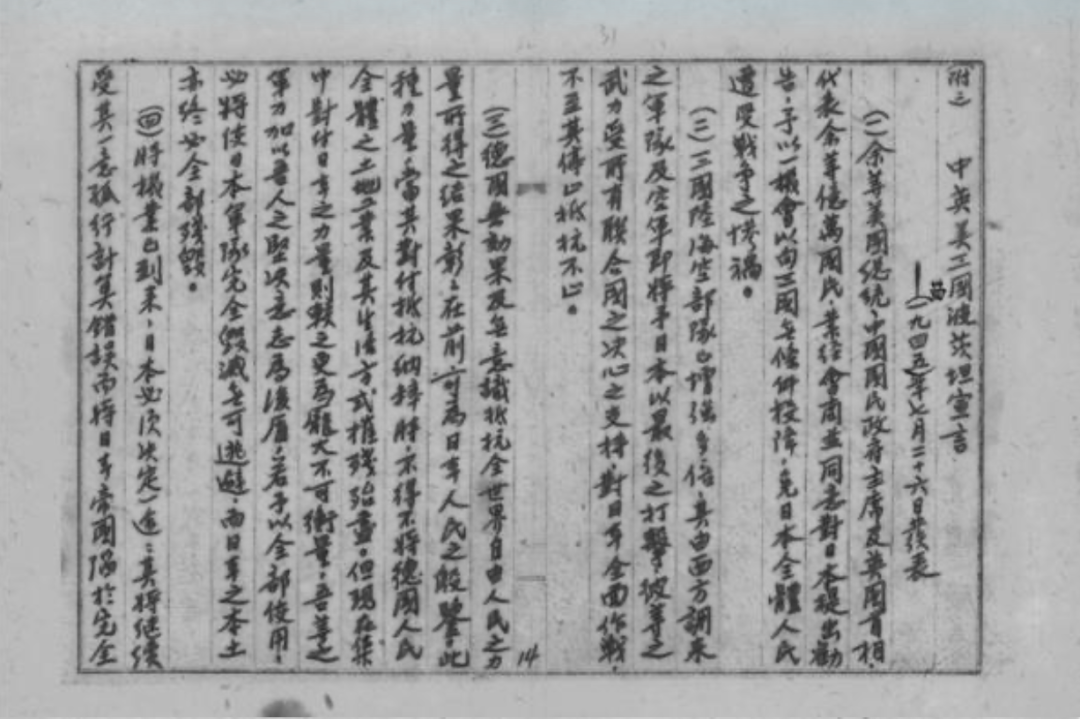 附之　中英美三國波茨坦宣言
——(一九四五年七月二十六日發表
(一)余等美國總統、中國國民政府主席及英國首相、
代表余等億萬國民、業經會商並同意對日本提出勸
告、予以一機會以向三國無條件投降、免日本全體人民
遭受戰爭之慘禍。
(二)三國陸海空部隊已增強多倍、其由西方調來
之軍隊及空軍即將予日本以最後之打擊、彼等之
武力受所有聯合國之決心之支持、對日本全面作戰、
不至其停止抵抗不止。
14
(三)德國無効果及無意識抵抗全世界自由人民之力
量所得之結果彰彰在前、可為日本人民之殷鑒、此
種力量、當其對付抵抗納粹時、不得不將德國人民
全體之土地工業及其生活方式摧殘殆盡、但現在集
中對付日本之力量則較之更為龐大不可衡量、吾等之
軍力加以吾人之堅決意志為後盾、若予以全部使用、
必將使日本軍隊完全毀滅無可逃避、而日本之本土
亦終必全部殘毀。
(四)時機業已到來、日本必須決定一途：其將继续
受其一意孤行計算錯誤而將日本帝國陷於完全